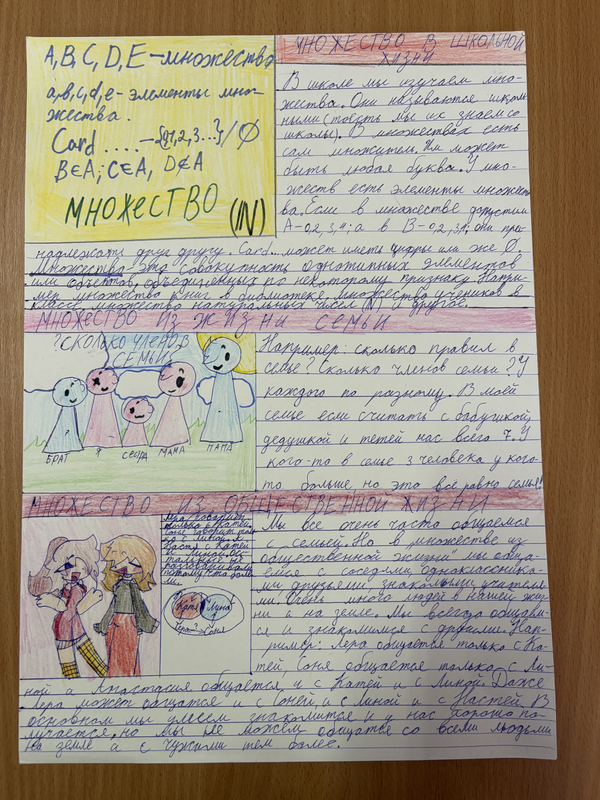 A, B, C, D, E – множества
a, b, c, d, e – элементы мно-
жества.
Card .... – {1,2,3...}/∅
B∈A; C∈A, D∉A
МНОЖЕСТВО (IN)
МНОЖЕСТВО В ШКОЛЬНОЙ
ЖИЗНИ
В школе мы изучаем мно-
жества. Они называются школь
ными (тоесть мы их знаем со
школы). В множествах есть
сам множитель. Им может
быть любая буква. У мно-
жеств есть элементы множест
ва. Если в множестве допустим
они при-
надлежать друг другу. Card... может иметь цифры или же ∅.
Множества – это совокупность однотипных элементов
или объектов, объединенных по некоторому признаку. Напри-
мер множество книг в библиотеке, множество учеников в
классе, множество натуральных чисел (N) и другое.
МНОЖЕСТВО ИЗ ЖИЗНИ СЕМЬИ
?СКОЛЬКО ЧЛЕНОВ
СЕМЬИ
БРАТ Я СЕСТРА МАМА ПАПА
Например: сколько правил в
семье? Сколько членов семьи? У
каждого по разному. В моей
семье если считать с бабушкой,
дедушкой и тетей нас всего 7. У
кого-то в семье 3 человека у кого-
то больше но это всё равно семья!
МНОЖЕСТВО ИЗ ОБЩЕСТВЕННОЙ ЖИЗНИ
Лера говорит
только с Катей
Соня говорит толь
ко с Линой. А
Настя с Катей
и Линой.
Катя Лина
Лера Соня
Мы все очень часто общаемся
с семьей. Но в множестве из
общественной жизни" мы обща-
емся с соседями, одноклассника-
ми друзьями, знакомыми, учителя-
ми. Очень много людей в нашей жиз-
ни а на земле. Мы всегда общаем-
ся и знакомимся с другими. Нап-
ример: Лера общается только с Ка-
тей, Соня общается только с Ли-
ной а Анастасия общается и с Катей и с Линой. Даже
Лера может общатся и с Соней, и с Линой и с Настей. В
основном мы умеем знакомится и у нас хорошо по-
лучается, но мы не можем общатся со всеми людьми
на земле а с чужими тем более.